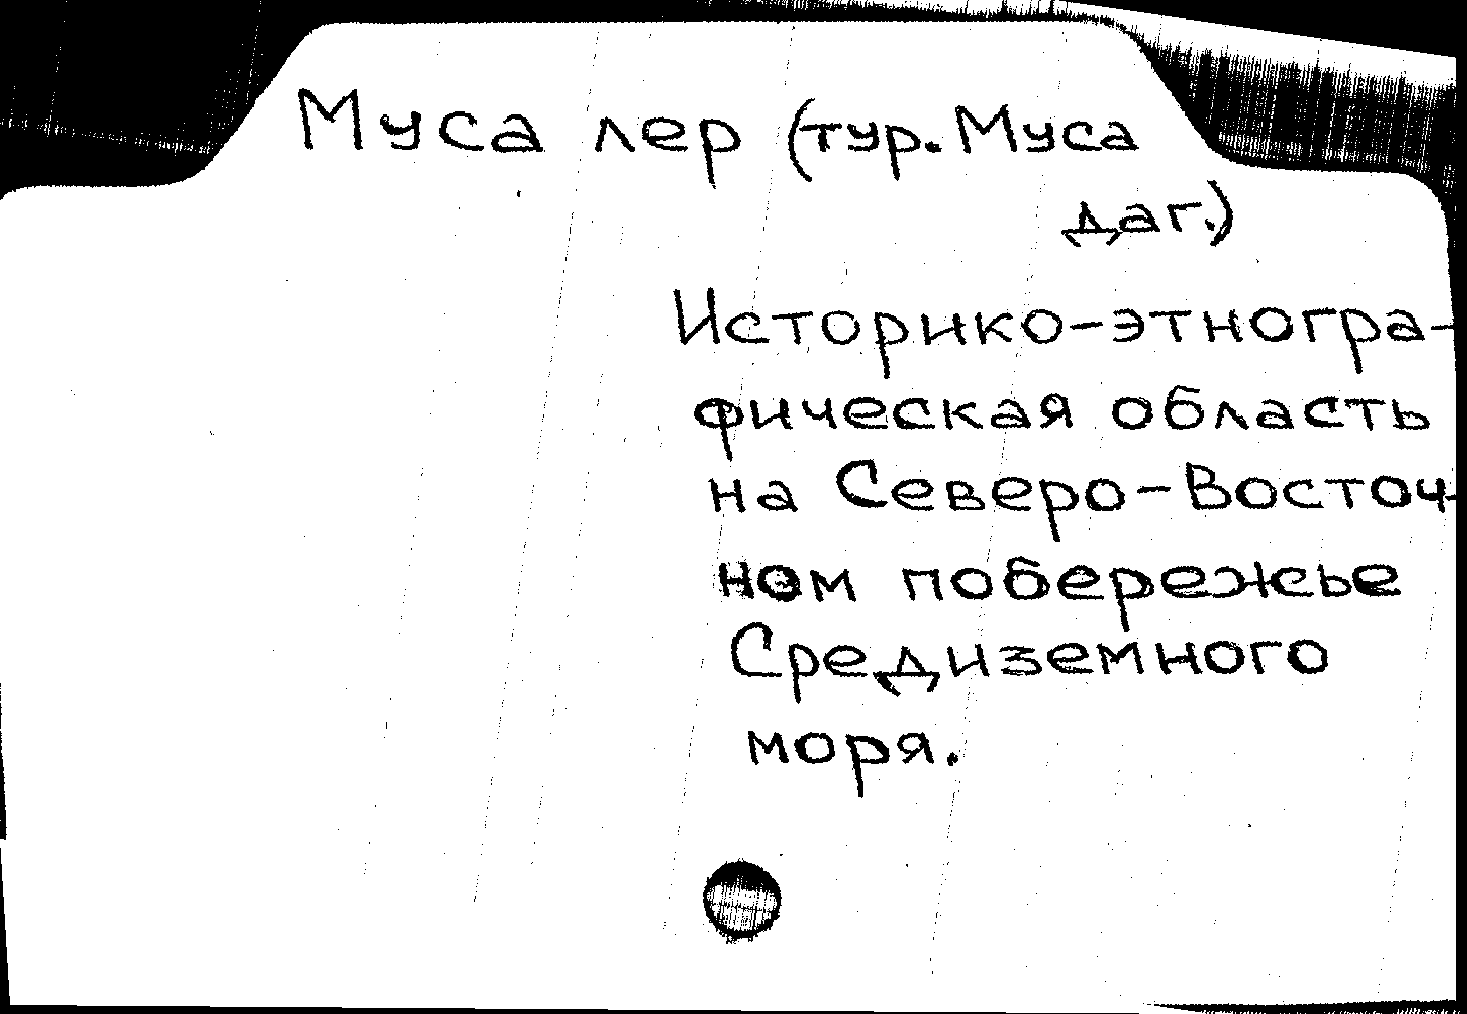 Муса лер (тур. Муса
даг.)
Историко-этногра-
фическая область
на Северо-Восточ-
ном побережье
Средиземного
моря.